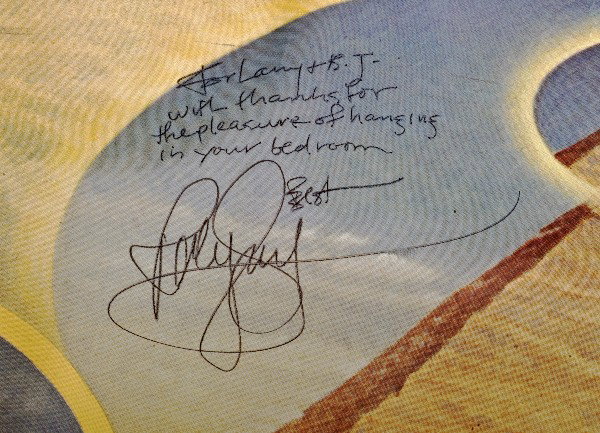 For Larry + B.J.
with thanks for
the pleasure of hanging
in your bedroom
Best